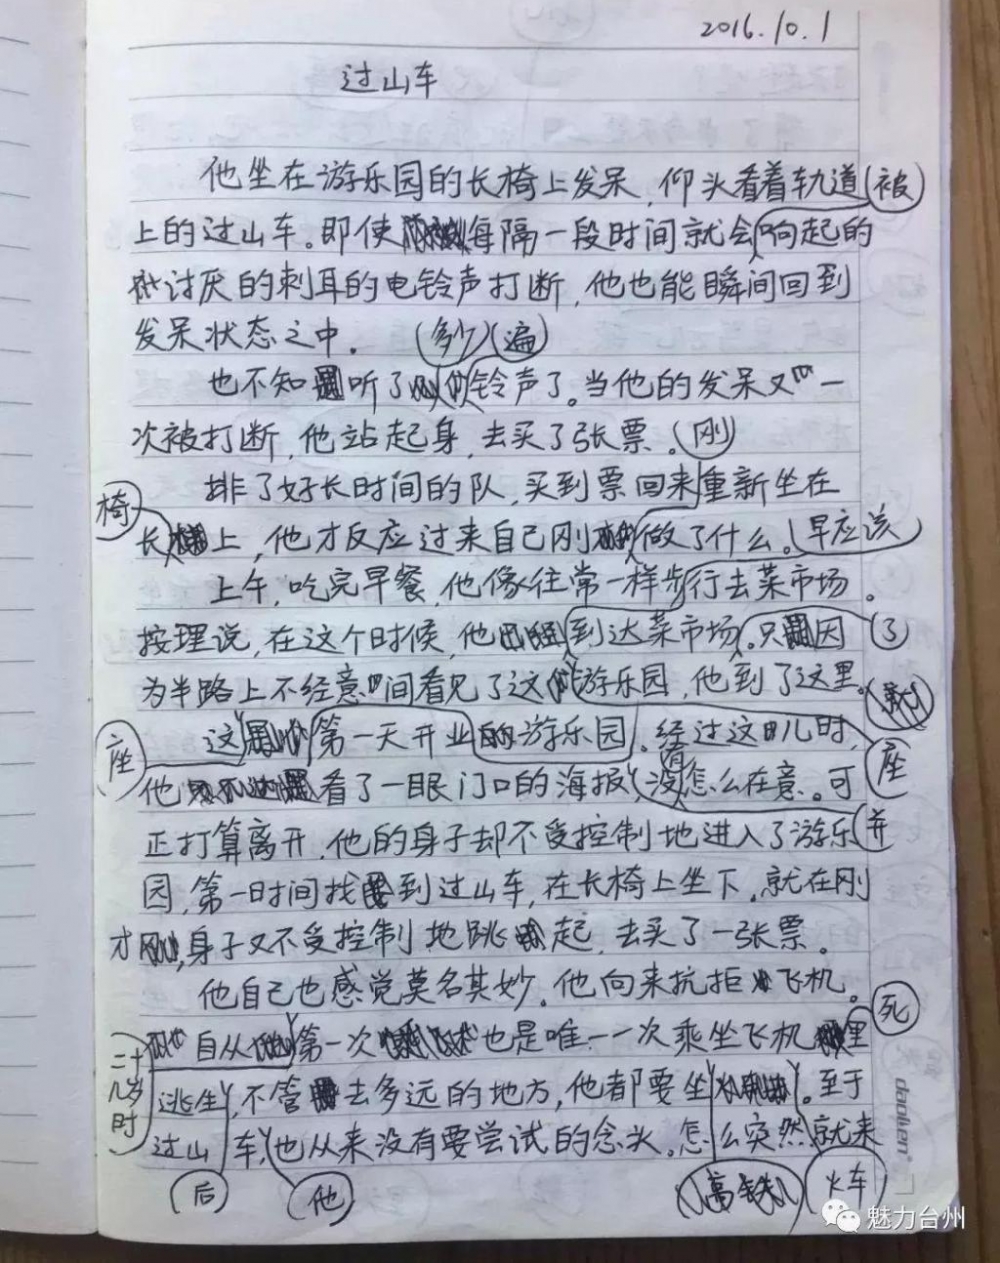 2016.10.1
过山车
他坐在游乐园的长椅上发呆,仰头看着轨道(被)
上的过山车。即使每隔一段时间就会响起的
讨厌的刺耳的电铃声打断,他也能瞬间回到
发呆状态之中。(多少)(遍)
也不知听了铃声了。当他的发呆又一
次被打断,他站起身,去买了张票。(刚)
排了好长时间的队,买到票回来重新坐在
椅
长上,他才反应过来自己刚做了什么。(早应该
上午,吃完早餐,他像往常一样步行去菜市场。
按理说,在这个时候,他到达菜市场。只因(了)
为半路上不经意间看见了这游乐园,他到了这里。
座
这第一天开业的游乐园。经过这儿时,
有
座
他看了一眼门口的海报,没怎么在意。可
正打算离开,他的身子却不受控制地进入了游乐(并)
园,第一时间找到过山车,在长椅上坐下。就在刚
才,身子又不受控制地跳起,去买了一张票。
他自己也感觉莫名其妙。他向来抗拒飞机。
死
二十几岁时
自从第一次也是唯一一次乘坐飞机里
逃生,不管去多远的地方,他都要坐。至于
过山车,也从来没有要尝试的念头。怎么突然就来
后
他
(高铁)
火车
daolen®
魅力台州